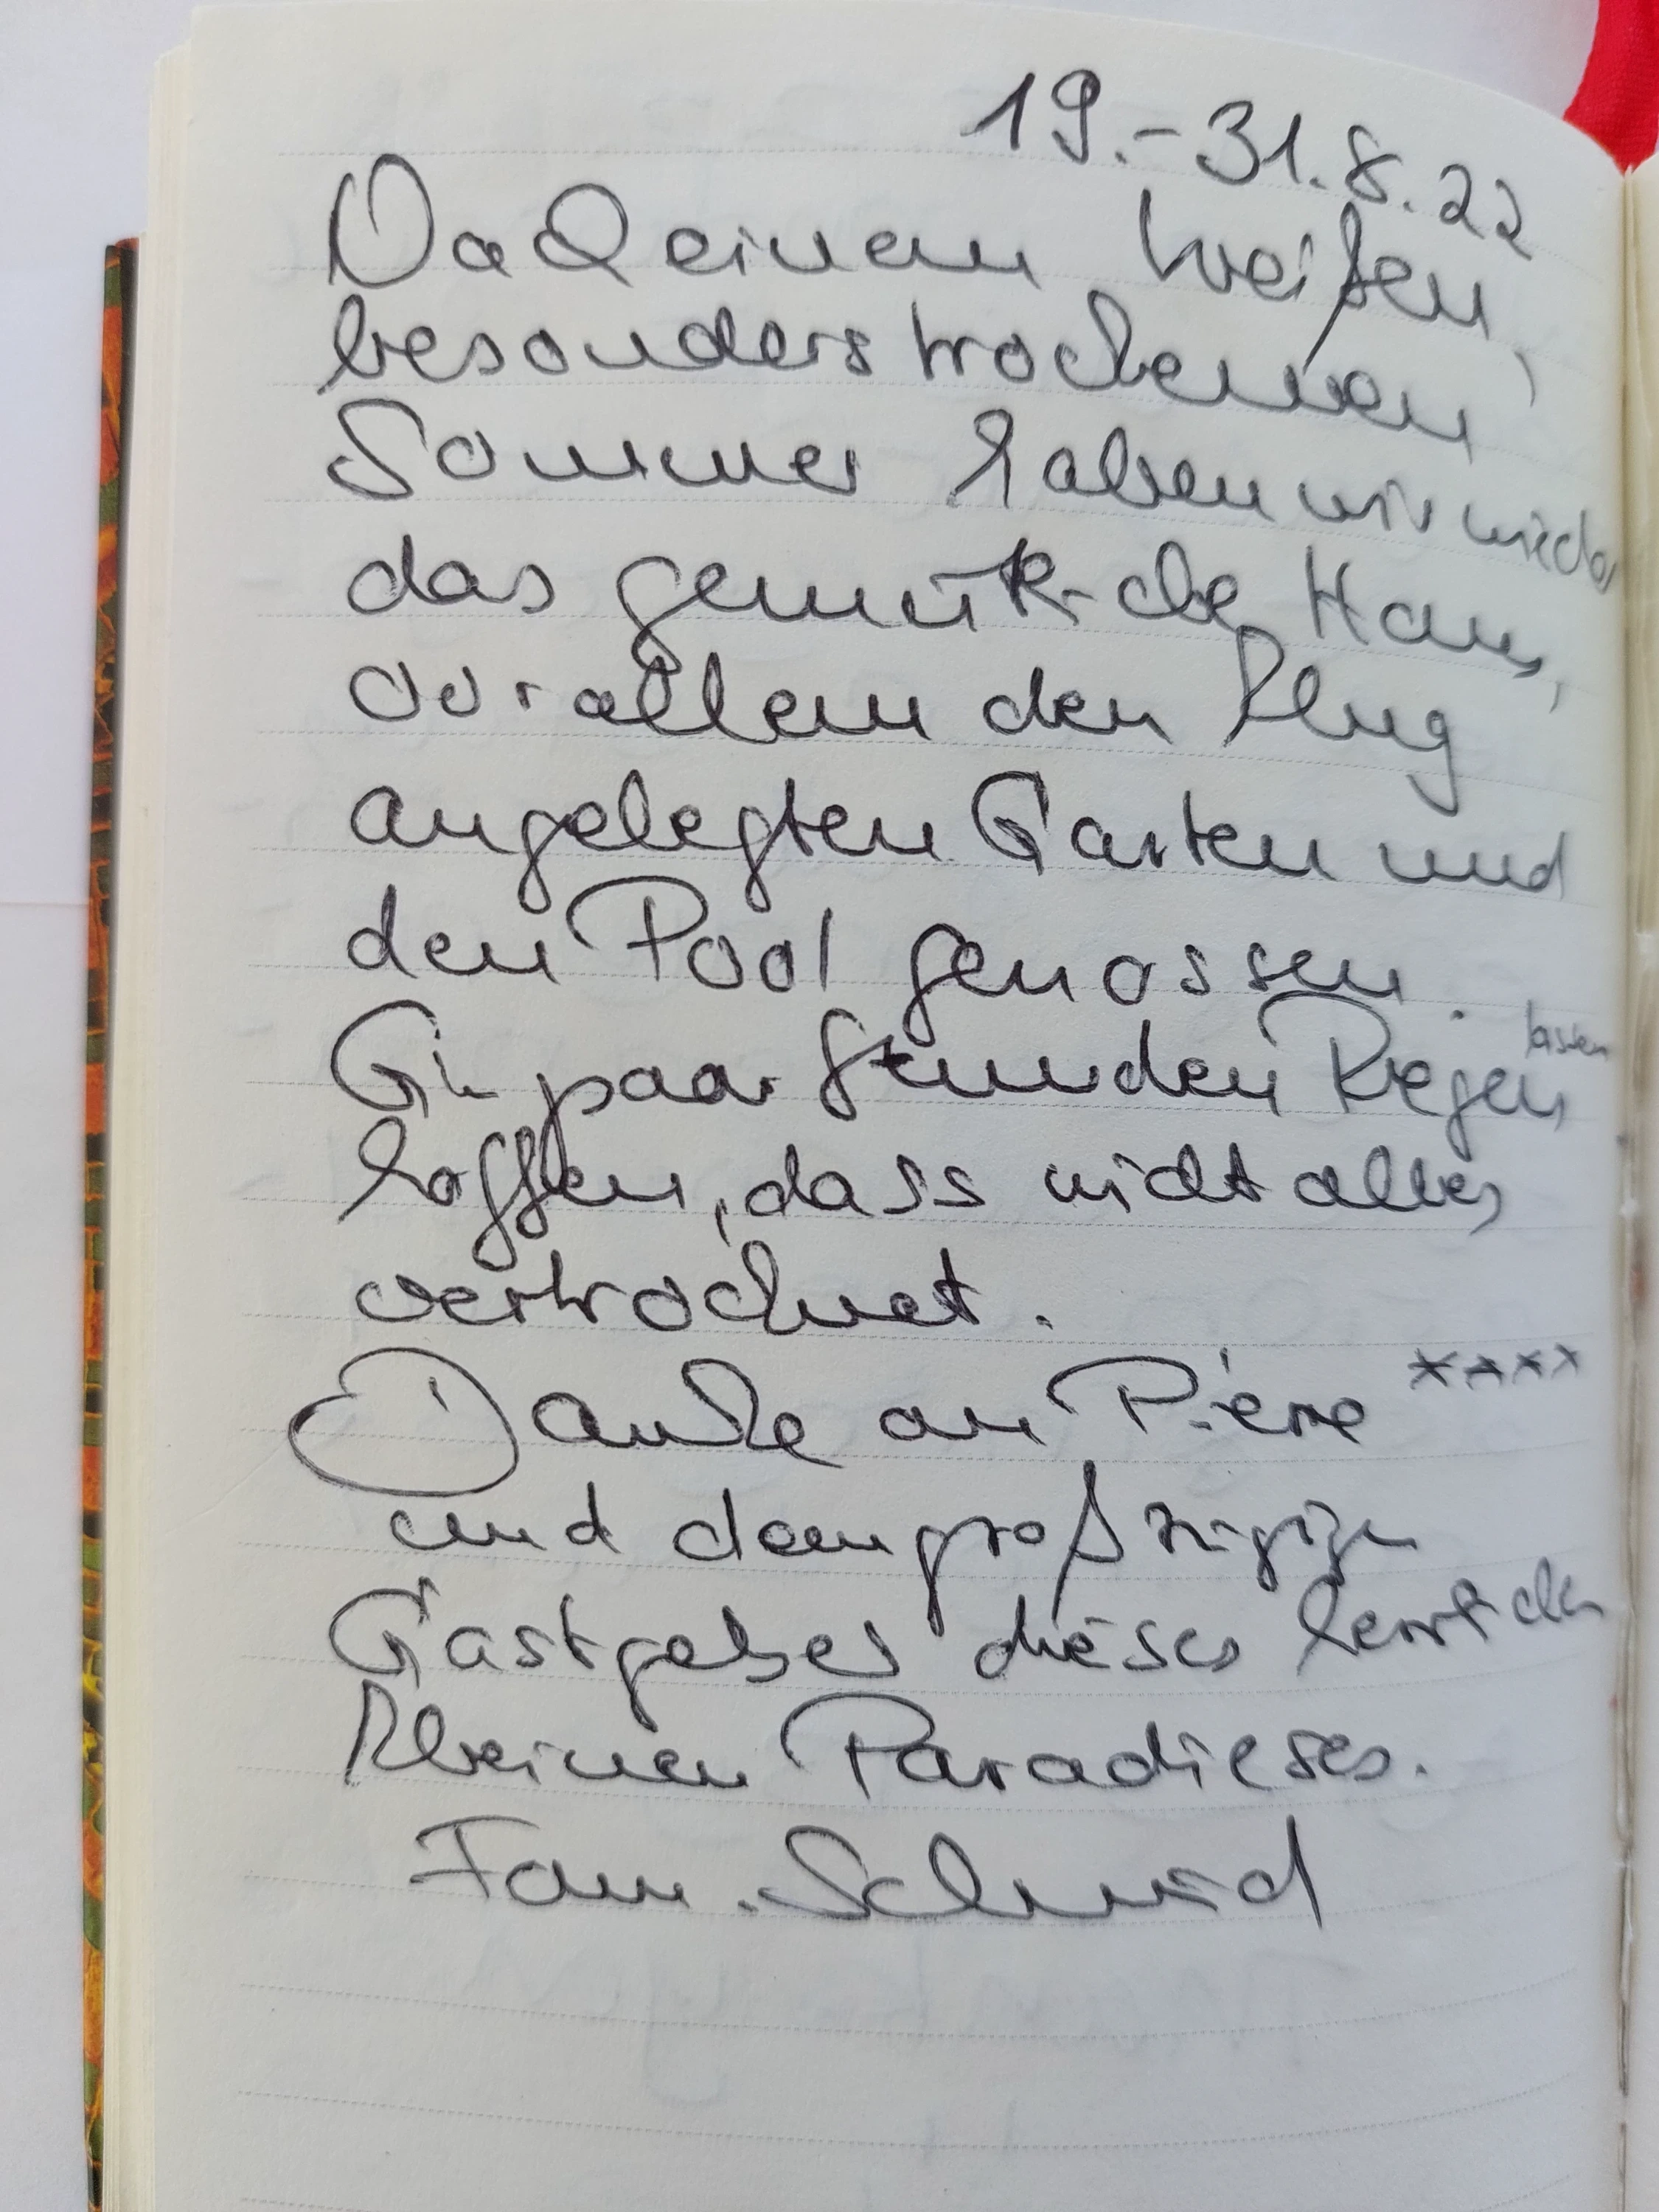 19.-31.8.22
Nach einem heißen,
besonders trockenen
Sommer haben wir wieder
das gemütliche Haus,
vor allem den klug
angelegten Garten und
den Pool genossen.
Ein paar Stunden Regen lassen
hoffen, dass nicht alles
vertrocknet.
Danke an Pierre ****
und dem großzügigen
Gastgeber dieses herrlichen
kleinen Paradieses.
Fam. Schmid